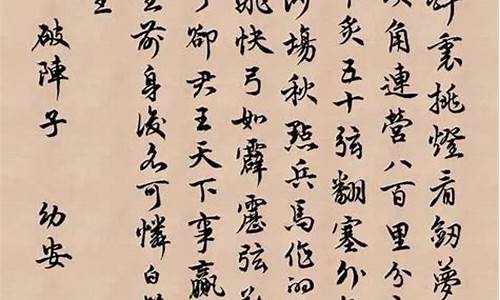 裏挑燈看劍夢
角連營八百里分
炙五十弦翻塞外
沙場秋點兵馬作的
飛快弓如霹靂弦
了卻君王天下事贏
前身後名可憐白
生
破陣子 幼安